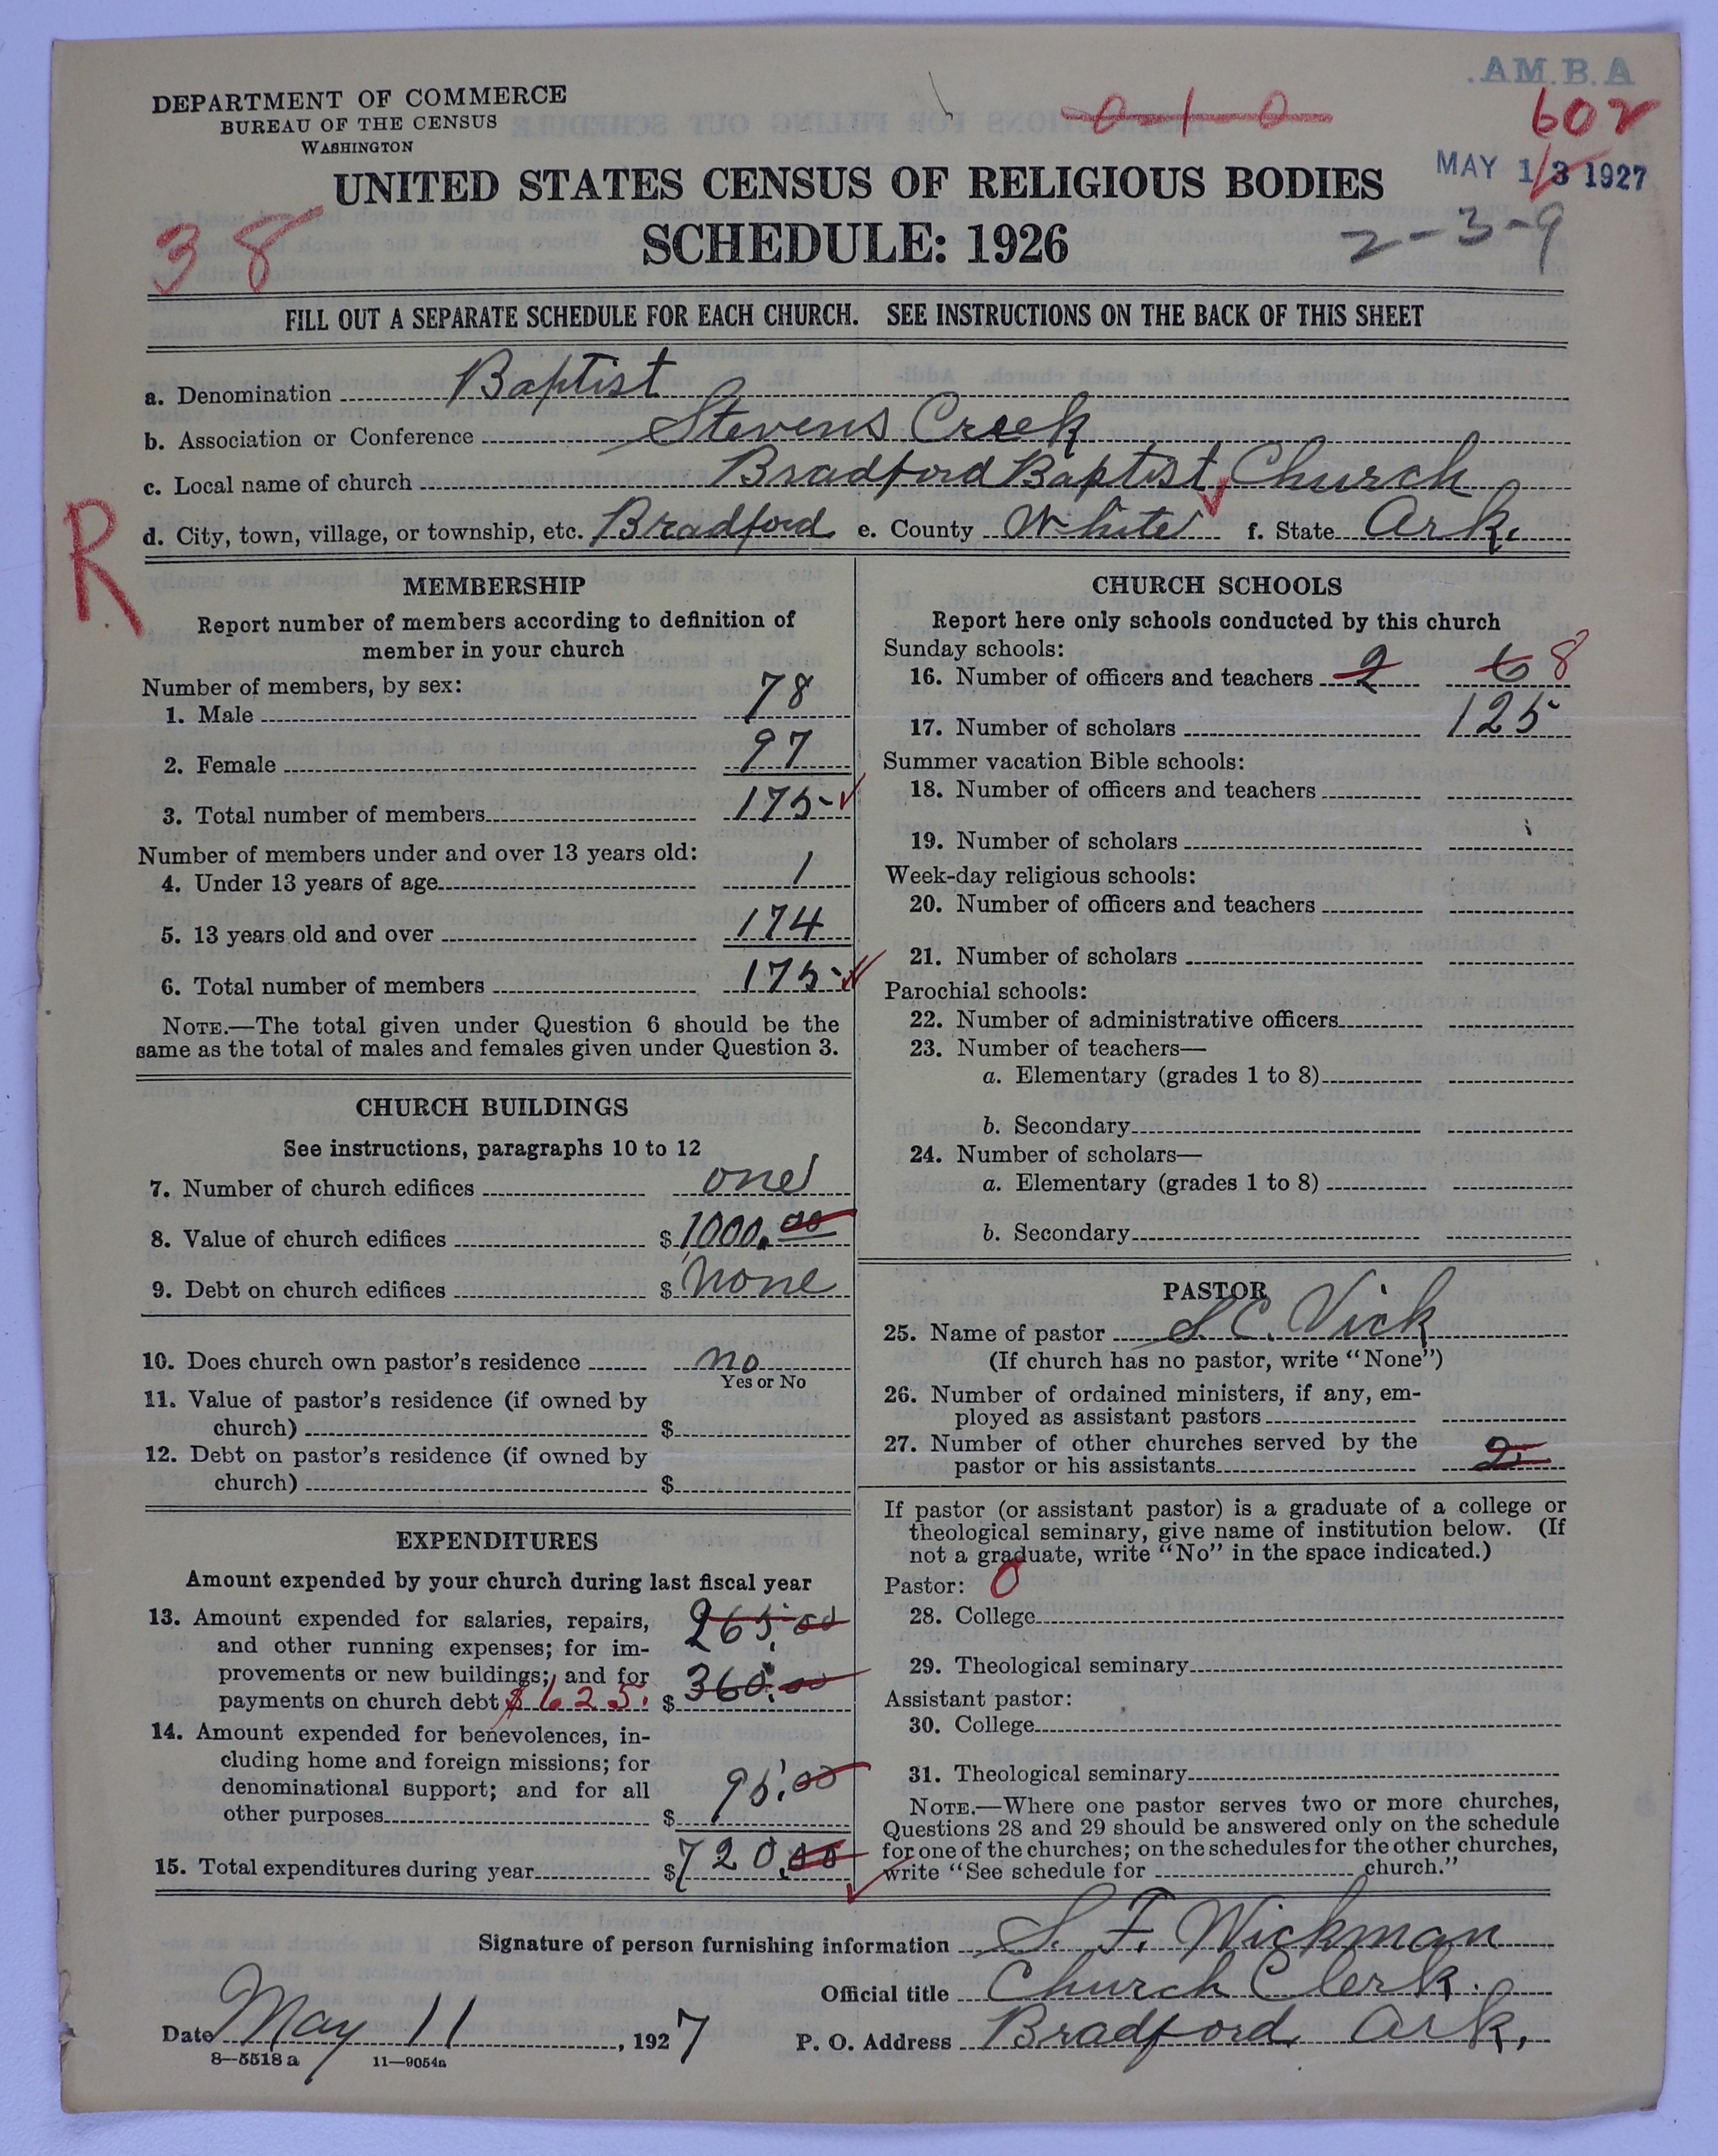 .AM.B.A
DEPARTMENT OF COMMERCE
BUREAU OF THE CENSUS
WASHINGTON
0-1-0
602
MAY 13 1927
UNITED STATES CENSUS OF RELIGIOUS BODIES
SCHEDULE: 1926
38
2-3-9
FILL OUT A SEPARATE SCHEDULE FOR EACH CHURCH. SEE INSTRUCTIONS ON THE BACK OF THIS SHEET
a. Denomination Baptist
b. Association or Conference Stevens Creek
c. Local name of church Bradford Baptist Church
d. City, town, village, or township, etc. Bradford e. County White f. State Ark.
R
MEMBERSHIP
Report number of members according to definition of
member in your church
Number of members, by sex:
1. Male 78
2. Female 97
3. Total number of members 175
Number of members under and over 13 years old:
4. Under 13 years of age 1
5. 13 years old and over 174
6. Total number of members 175
NOTE.—The total given under Question 6 should be the
same as the total of males and females given under Question 3.
CHURCH BUILDINGS
See instructions, paragraphs 10 to 12
7. Number of church edifices one
8. Value of church edifices $ 1000.00
9. Debt on church edifices $ None
10. Does church own pastor's residence no
Yes or No
11. Value of pastor's residence (if owned by
church) $
12. Debt on pastor's residence (if owned by
church) $
EXPENDITURES
Amount expended by your church during last fiscal year
13. Amount expended for salaries, repairs, 265.00
and other running expenses; for im-
provements or new buildings; and for 360.00
payments on church debt $625. $
14. Amount expended for benevolences, in-
cluding home and foreign missions; for
denominational support; and for all 95.00
other purposes $
15. Total expenditures during year $ 720.00
CHURCH SCHOOLS
Report here only schools conducted by this church
Sunday schools:
16. Number of officers and teachers 2 6 8
17. Number of scholars 125
Summer vacation Bible schools:
18. Number of officers and teachers
19. Number of scholars
Week-day religious schools:
20. Number of officers and teachers
21. Number of scholars
Parochial schools:
22. Number of administrative officers
23. Number of teachers—
a. Elementary (grades 1 to 8)
b. Secondary
24. Number of scholars—
a. Elementary (grades 1 to 8)
b. Secondary
PASTOR
25. Name of pastor S. C. Vick
(If church has no pastor, write "None")
26. Number of ordained ministers, if any, em-
ployed as assistant pastors
27. Number of other churches served by the
pastor or his assistants 2
If pastor (or assistant pastor) is a graduate of a college or
theological seminary, give name of institution below. (If
not a graduate, write "No" in the space indicated.)
Pastor: 0
28. College
29. Theological seminary
Assistant pastor:
30. College
31. Theological seminary
NOTE.—Where one pastor serves two or more churches,
Questions 28 and 29 should be answered only on the schedule
for one of the churches; on the schedules for the other churches,
write "See schedule for church."
Signature of person furnishing information S. F. Wickman
Official title Church Clerk.
Date May 11, 1927 P. O. Address Bradford Ark,
8—5518 a 11—9054a